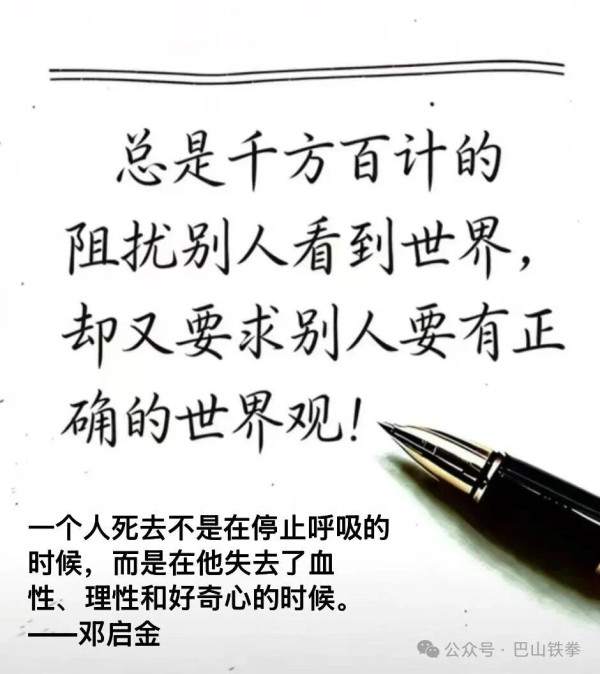 总是千方百计的
阻扰别人看到世界，
却又要求别人要有正
确的世界观！
一个人死去不是在停止呼吸的
时候，而是在他失去了血
性、理性和好奇心的时候。
——邓启金
公众号·巴山铁拳